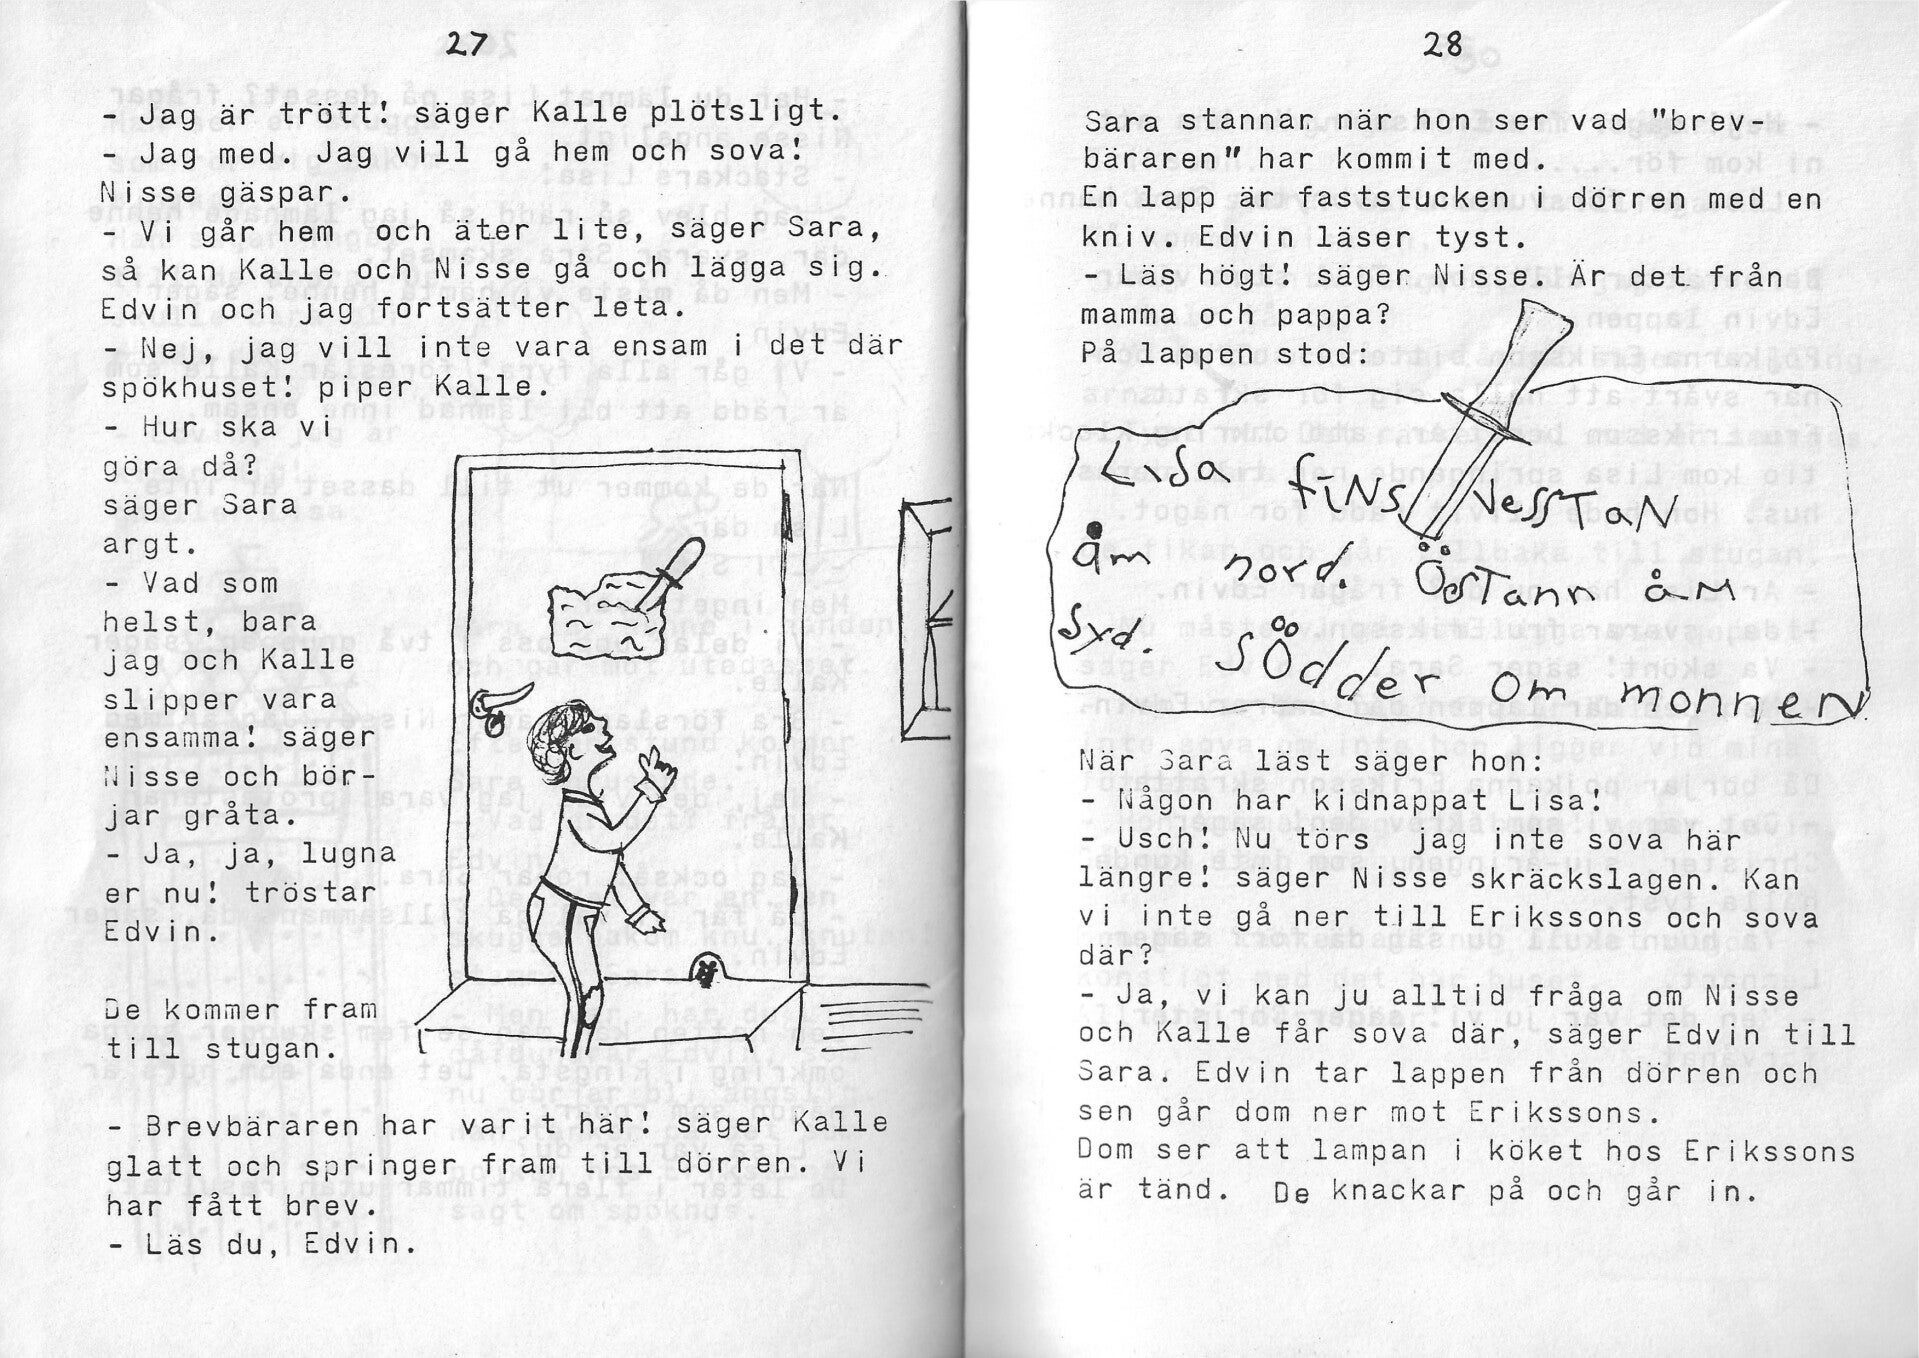 27
- Jag är trött! säger Kalle plötsligt.
- Jag med. Jag vill gå hem och sova!
Nisse gäspar.
- Vi går hem och äter lite, säger Sara,
så kan Kalle och Nisse gå och lägga sig.
Edvin och jag fortsätter leta.
- Nej, jag vill inte vara ensam i det där
spökhuset! piper Kalle.
- Hur ska vi
göra då?
säger Sara
argt.
- Vad som
helst, bara
jag och Kalle
slipper vara
ensamma! säger
Nisse och bör-
jar gråta.
- Ja, ja, lugna
er nu! tröstar
Edvin.
De kommer fram
till stugan.
- Brevbäraren har varit här! säger Kalle
glatt och springer fram till dörren. Vi
har fått brev.
- Läs du, Edvin.
28
Sara stannar när hon ser vad "brev-
bäraren" har kommit med.
En lapp är faststucken i dörren med en
kniv. Edvin läser tyst.
- Läs högt! säger Nisse. Är det från
mamma och pappa?
På lappen stod:
Lisa fiNs VessTaN
åm nord. ÖsTann åM
syd. SÖdder om monnen
När Sara läst säger hon:
- Någon har kidnappat Lisa!
- Usch! Nu törs jag inte sova här
längre! säger Nisse skräckslagen. Kan
vi inte gå ner till Erikssons och sova
där?
- Ja, vi kan ju alltid fråga om Nisse
och Kalle får sova där, säger Edvin till
Sara. Edvin tar lappen från dörren och
sen går dom ner mot Erikssons.
Dom ser att lampan i köket hos Erikssons
är tänd. De knackar på och går in.